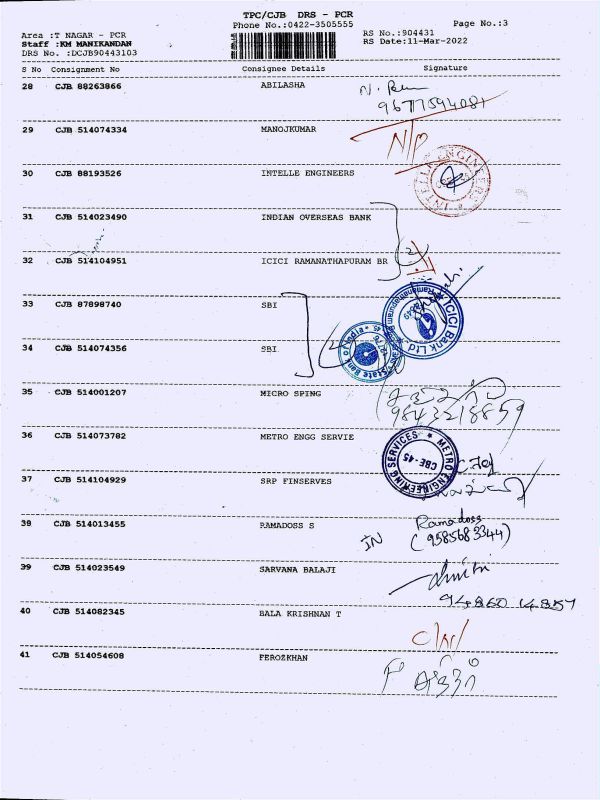 TPC/CJB DRS - PCR
Phone No.:0422-3505555
Page No.:3
Area :T NAGAR - PCR
RS No.:904431
Staff :KM MANIKANDAN
RS Date:11-Mar-2022
DRS No. :DCJB90443103
S No Consignment No Consignee Details Signature
28 CJB 88263866 ABILASHA
9677594081
29 CJB 514074334 MANOJKUMAR N/P
30 CJB 88193526 INTELLE ENGINEERS
INTELLE ENGINEERS
31 CJB 514023490 INDIAN OVERSEAS BANK
32 CJB 514104951 ICICI RAMANATHAPURAM BR
(2)
33 CJB 87898740 SBI
ICICI Bank Ltd
34 CJB 514074356 SBI
State Bank of India
35 CJB 514001207 MICRO SPING
9843218859
36 CJB 514073782 METRO ENGG SERVIE
METRO ENGINEERING SERVICES
CBE-45
37 CJB 514104929 SRP FINSERVES
38 CJB 514013455 RAMADOSS S
IN Ramadoss
(9585683344)
39 CJB 514023549 SARVANA BALAJI
94860 14857
40 CJB 514082345 BALA KRISHNAN T
41 CJB 514054608 FEROZKHAN